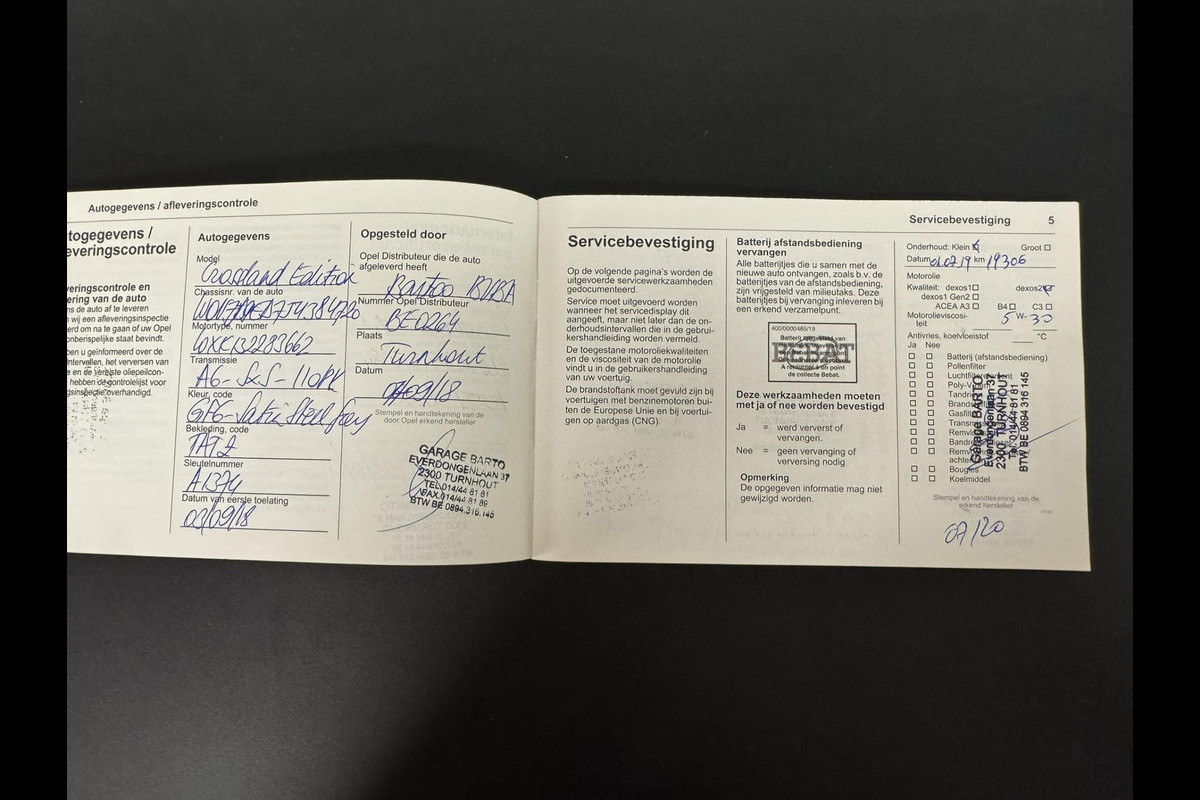 Autogegevens / afleveringscontrole
togegevens /
everingscontrole
veringscontrole en
ering van de auto
ns de auto af te leveren
wij een afleveringsinspectie
erd om na te gaan of uw Opel
onberispelijke staat bevindt.
en u geïnformeerd over de
ntervallen, het verversen van
e en de vereiste oliepeilcon-
hebben de controlelijst voor
gsinspectie overhandigd.
Autogegevens
Model
Crossland Edition
Chassisnr. van de auto
Motortype, nummer
Transmissie
A6-S&S-110PK
Kleur, code
Bekleding, code
TATZ
Sleutelnummer
A1374
Datum van eerste toelating
03/09/18
Opgesteld door
Opel Distributeur die de auto
afgeleverd heeft
Bartoo BVBA
Nummer Opel Distributeur
BE0264
Plaats
Turnhout
Datum
/09/18
Stempel en handtekening van de
door Opel erkend hersteller
GARAGE BARTO
EVERDONGENLAAN 37
2300 TURNHOUT
TEL.014/44 81 81
FAX.014/44 81 89
BTW BE 0894.316.145
Servicebevestiging 5
Servicebevestiging
Op de volgende pagina's worden de
uitgevoerde servicewerkzaamheden
gedocumenteerd.
Service moet uitgevoerd worden
wanneer het servicedisplay dit
aangeeft, maar niet later dan de on-
derhoudsintervallen die in de gebrui-
kershandleiding worden vermeld.
De toegestane motoroliekwaliteiten
en de viscositeit van de motorolie
vindt u in de gebruikershandleiding
van uw voertuig.
De brandstoftank moet gevuld zijn bij
voertuigen met benzinemotoren bui-
ten de Europese Unie en bij voertui-
gen op aardgas (CNG).
Batterij afstandsbediening
vervangen
Alle batterijtjes die u samen met de
nieuwe auto ontvangen, zoals b.v. de
batterijtjes van de afstandsbediening,
zijn vrijgesteld van milieutaks. Deze
batterijtjes bij vervanging inleveren bij
een erkend verzamelpunt.
400/0000465/19
BEBAT
A retourner à un point
de collecte Bebat.
Deze werkzaamheden moeten
met ja of nee worden bevestigd
Ja = werd ververst of
vervangen.
Nee = geen vervanging of
verversing nodig
Opmerking
De opgegeven informatie mag niet
gewijzigd worden.
Onderhoud: Klein Groot
Datum 01.07.19 km 19306
Motorolie
Kwaliteit: dexos1 dexos2
dexos1 Gen2
ACEA A3 B4 C3
Motorolieviscosi- 5 W- 30
teit
Antivries, koelvloeistof °C
Ja Nee
Batterij (afstandsbediening)
Pollenfilter
Bougies
Koelmiddel
Garage BARTO
Everdongenlaan 37
2300 TURNHOUT
Tel.: 014/44 81 81
BTW BE 0894 316 145
Stempel en handtekening van de
erkend hersteller
07/20